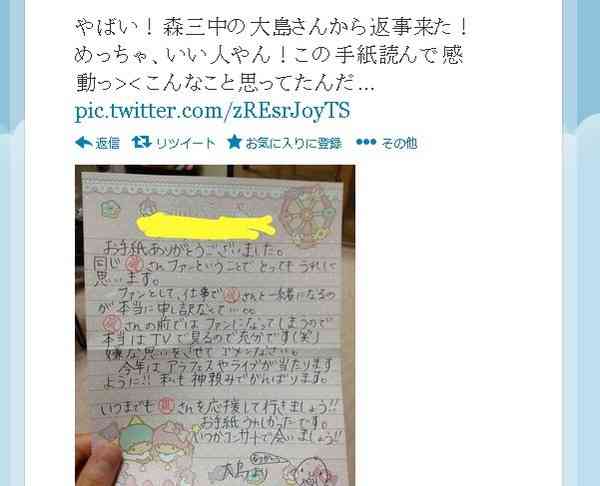 やばい！森三中の大島さんから返事来た！
めっちゃ、いい人やん！この手紙読んで感
動っ><こんなこと思ってたんだ...
pic.twitter.com/zREsrJoyTS
返信 リツイート お気に入りに登録 その他
お手紙ありがとうございました。
同じ嵐さんファンということでとってもうれしく
思います。
ファンとして、仕事で嵐さんと一緒になるの
が本当に申し訳なくって…。
嵐さんの前ではファンになってしまうので
本当はTVで見るので充分です(笑)
嫌な思いをさせてゴメンなさい。
今年はアラフェスやライブが当たります
ように!! 私も神頼みでがんばります。
いつまでも嵐さんを応援して行きましょう!!
お手紙うれしかったです。
いつかコンサートで会いましょう!!
大島より